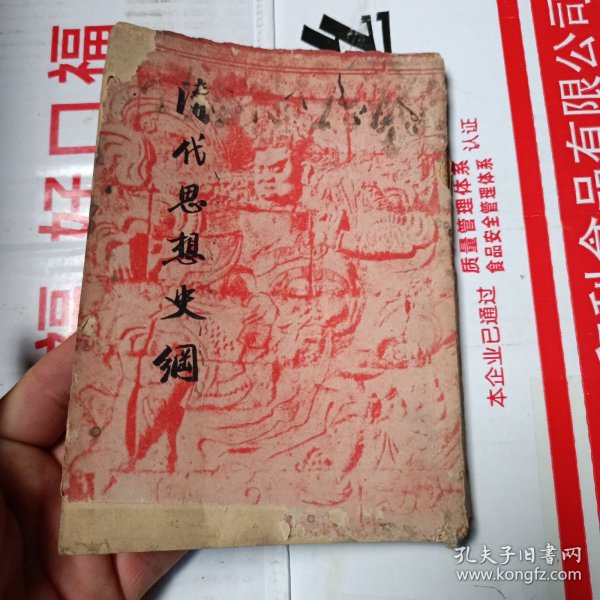 清代思想史綱
福口好
福
本企业已通过
质量管理体系
食品安全管理体系
认证
食品有限公司
孔夫子旧书网
www.kongfz.com